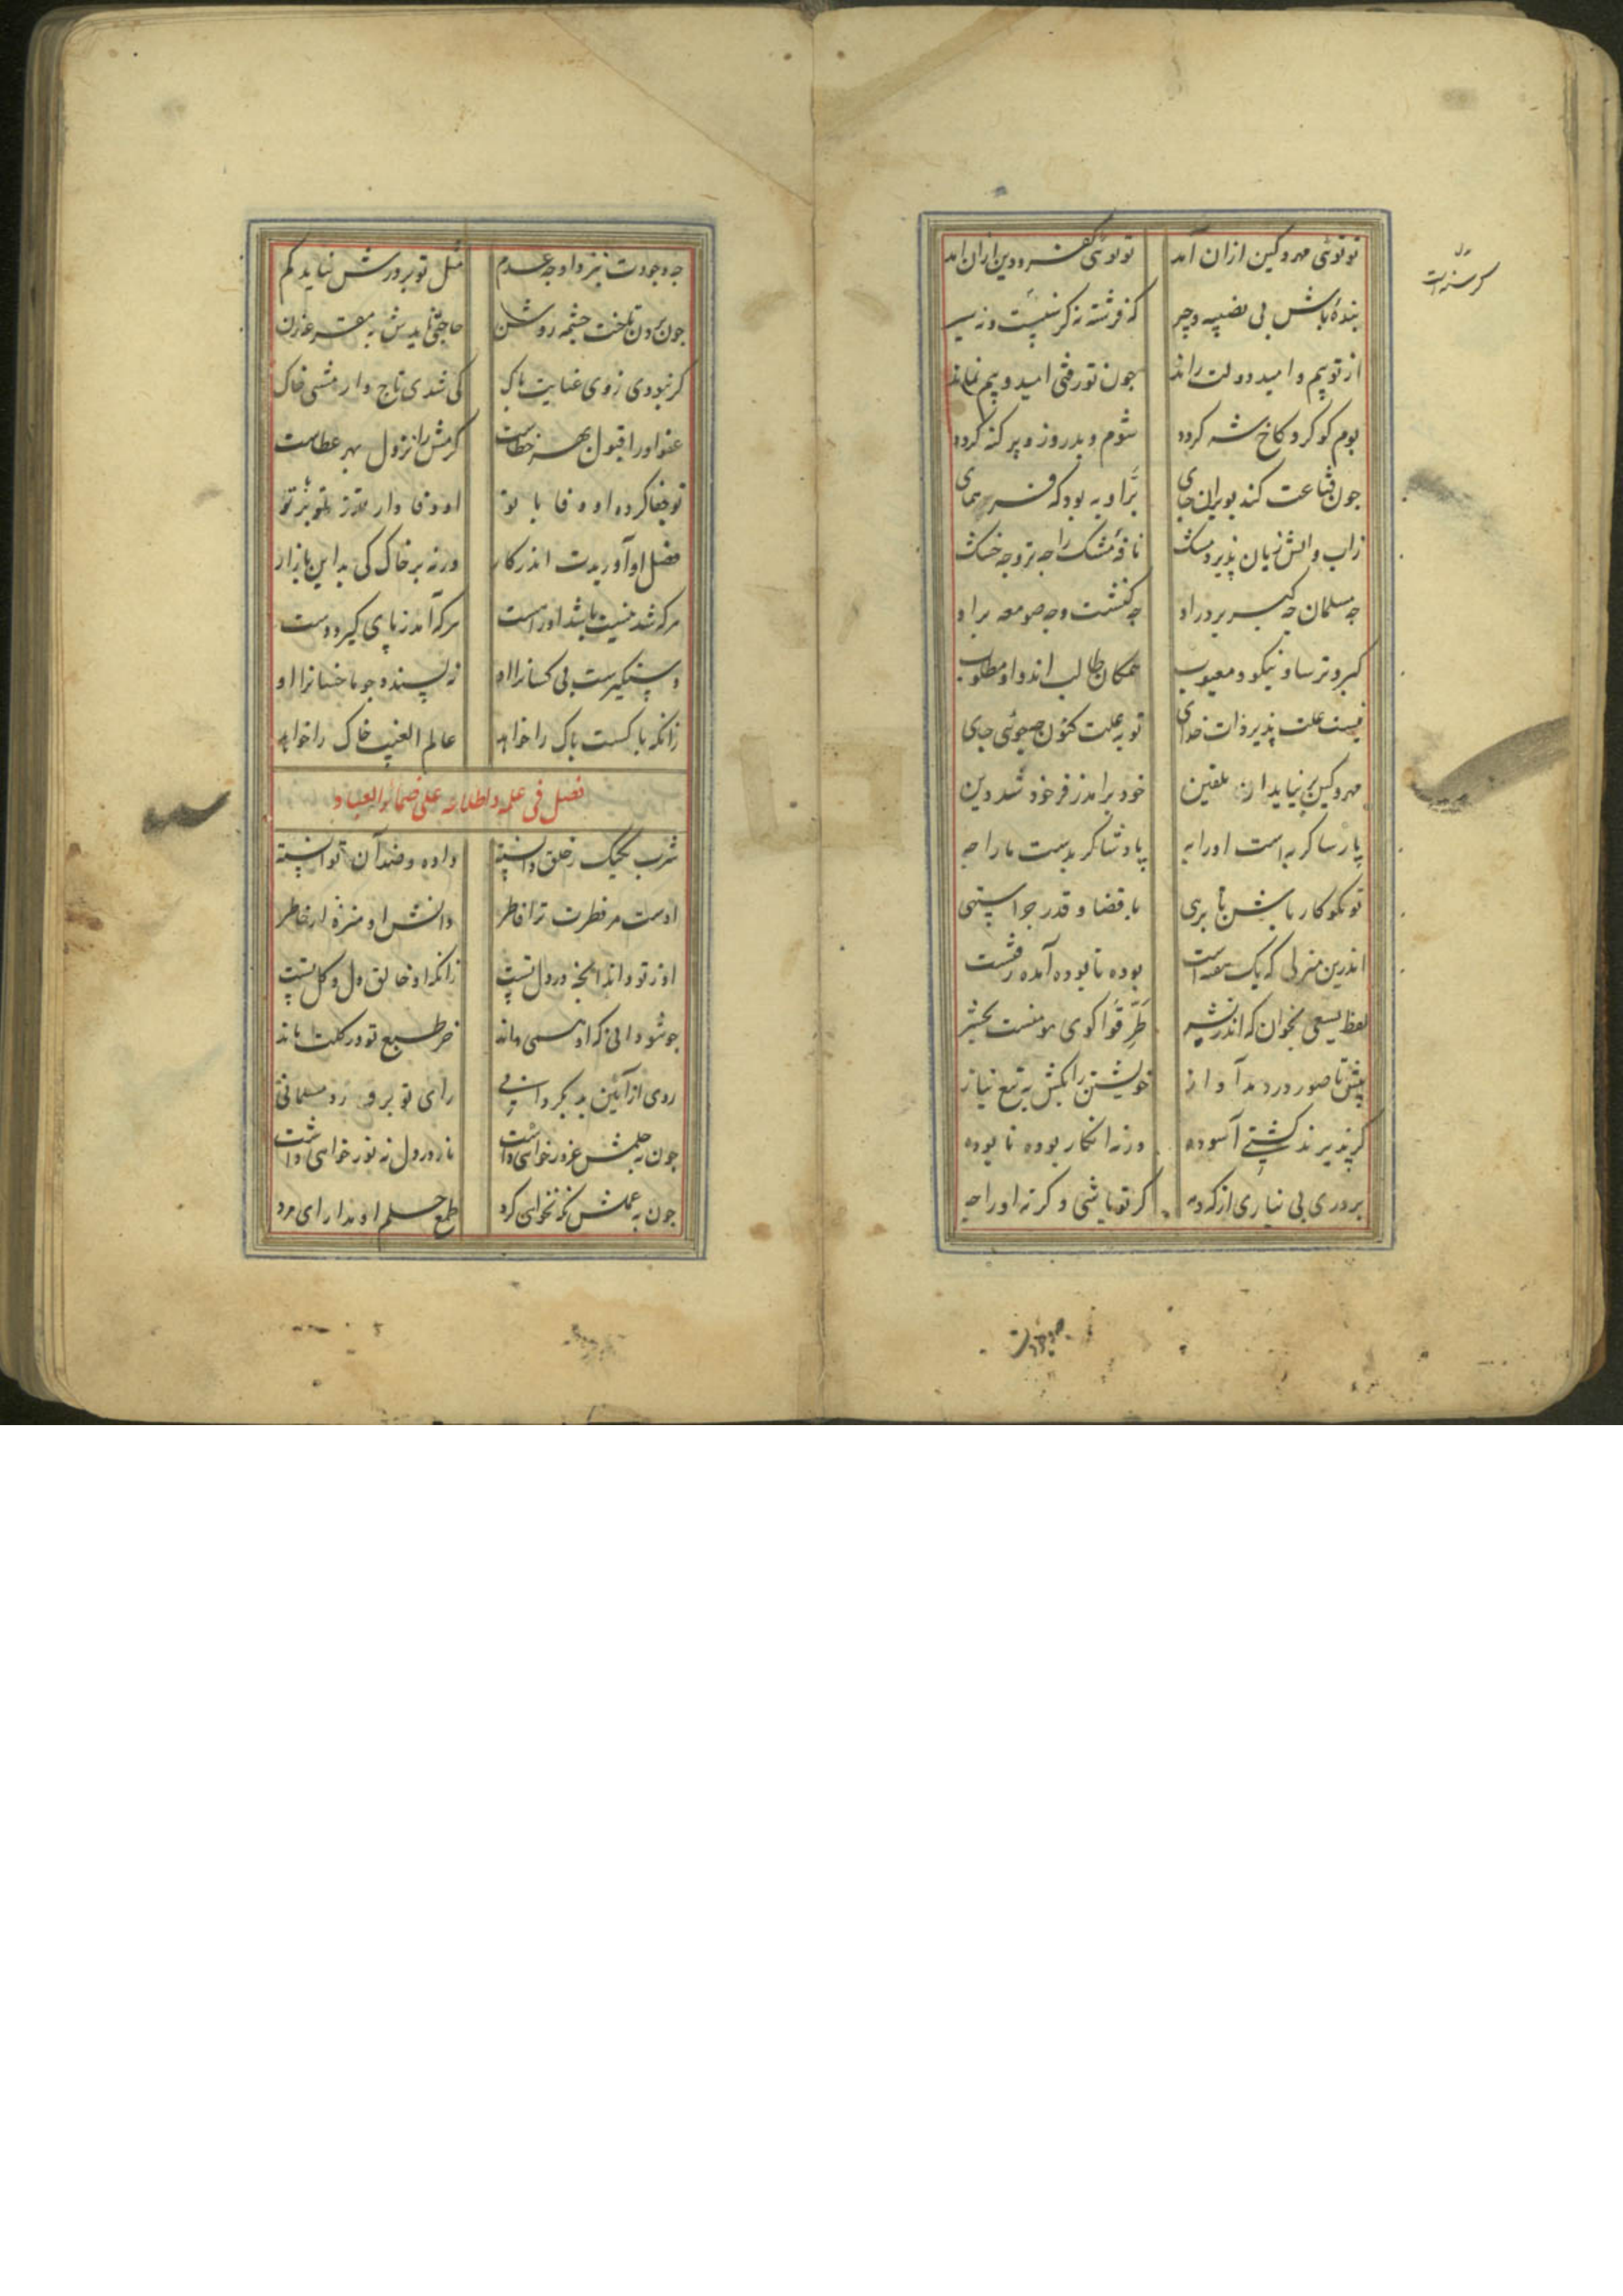 تو توئی مهر و کین ازان آمد تو توئی کفر و دین ازان آمد
بندهٔ باش بی نصیبه و چیر که فرشته نه گرسنیست و نه سیر
از تو بیم و امید دولت راند چون تو رفتی امید و بیم نماند
بوم کو گرد کاخ شه گردد شوم و بدروز و پر گنه گردد
چون قناعت کند بویران جای پر او به بود که فر همای
زاب و آتش زیان پذیرد مشک نافهٔ مشک را چه تر و چه خشک
چه مسلمان چه گبر بر در او چه کنشت و چه صومعه بر او
گبر و ترسا و نیکو و معیوب همکان طالب اند و او مطلوب
نیست علت پذیر ذات خدای تو بعلت کنون چه جوئی جای
مهر و کین نیاید از تلقین خود براندر فرخود شد دین
پارسا گر به است او را به پادشا گر بدست ما را چه
تو نکوکار باش تا برهی با قضا و قدر چرا ستهی
اندرین منزلی که یک هفته است بوده نابوده آمده رفتست
لفظ یسعی بخوان که اندر نشر طرقوا گوی مومنست بحشر
پیش تا صور در دمد آواز خویشتن را بکش به تیغ نیاز
گر پذیرند گشتی آسوده ورنه انگار بوده نابوده
بر در بی نیازی از که و مه گر تو باشی و گر نه او را چه
چه وجودت بنزد او چه عدم مثل تو بر درش نیاید کم
چون برون تاخت چشمه روشن حاجتی نایدش به مقرعه زن
گر نبودی ز وی عنایت پاک کی شدی تاج دار مشتی خاک
عفو او را قبول بهر خطاست کرمش را نزول بهر عطاست
تو جفا کرده او وفا با تو او وفا دارتر ز تو بر تو
فضل او آوریدت اندر کار ورنه بر خاک کی بد این بازار
هرکه شد نیست باشد او را هست هرکه آمد ز پای گیرد دست
دستگیرست بی کسانرا او نپسندد چو ما خسانرا او
زانکه پاکست پاک را خواهد عالم الغیب خاک را خواهد
فصل فی علمه و اطلاعه علی ضمائر العباد
شرب یک یک ز خلق دانسته داده و ضد آن توانسته
اوست مر فطرت ترا فاطر دانش او منزه از خاطر
او ز تو داند آنچه در دل تست زانکه او خالق دل و گل تست
چو تو دانی که او همی داند خر طبع تو در گلت ماند
روی از آئین بد بگردانی رای تو بر فزود مسلمانی
چون به حلمش غرور خواهی داشت نار در دل نه نور خواهی داشت
چون به علمش نگه نخواهی کرد طمع حلم او مدار ای مرد